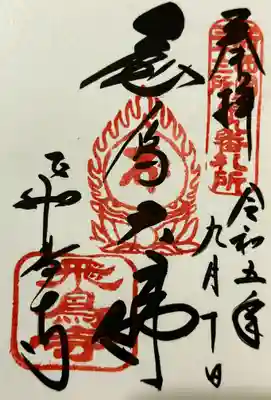 奉拝
令和五年
九月十日
飛鳥大佛
番札所
飛鳥寺